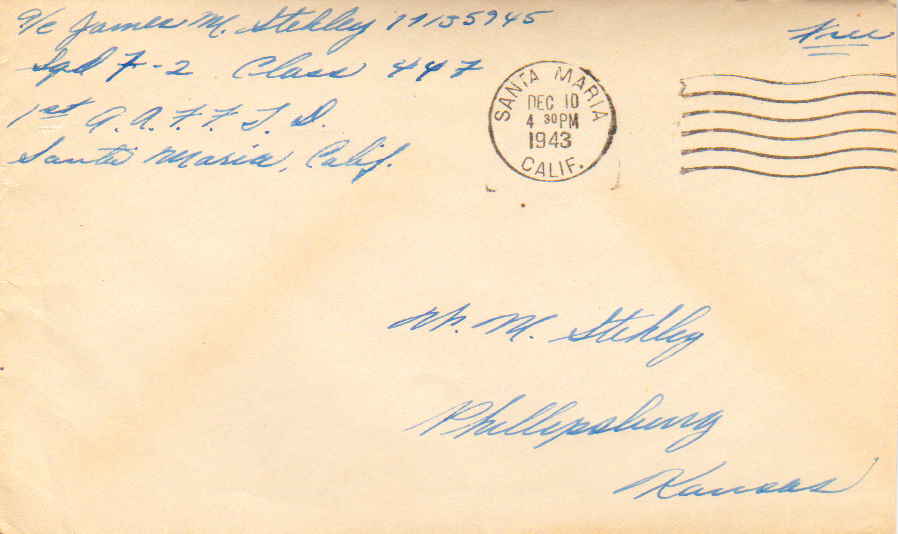 A/C James M. Stehley 17135945
Sqd 7-2 Class 44 7
1st A. A. F. F. T. D.
Santa Maria, Calif.
Free
SANTA MARIA
DEC 10
4 30 PM
1943
CALIF.
W. M. Stehley
Phillipsburg
Kansas